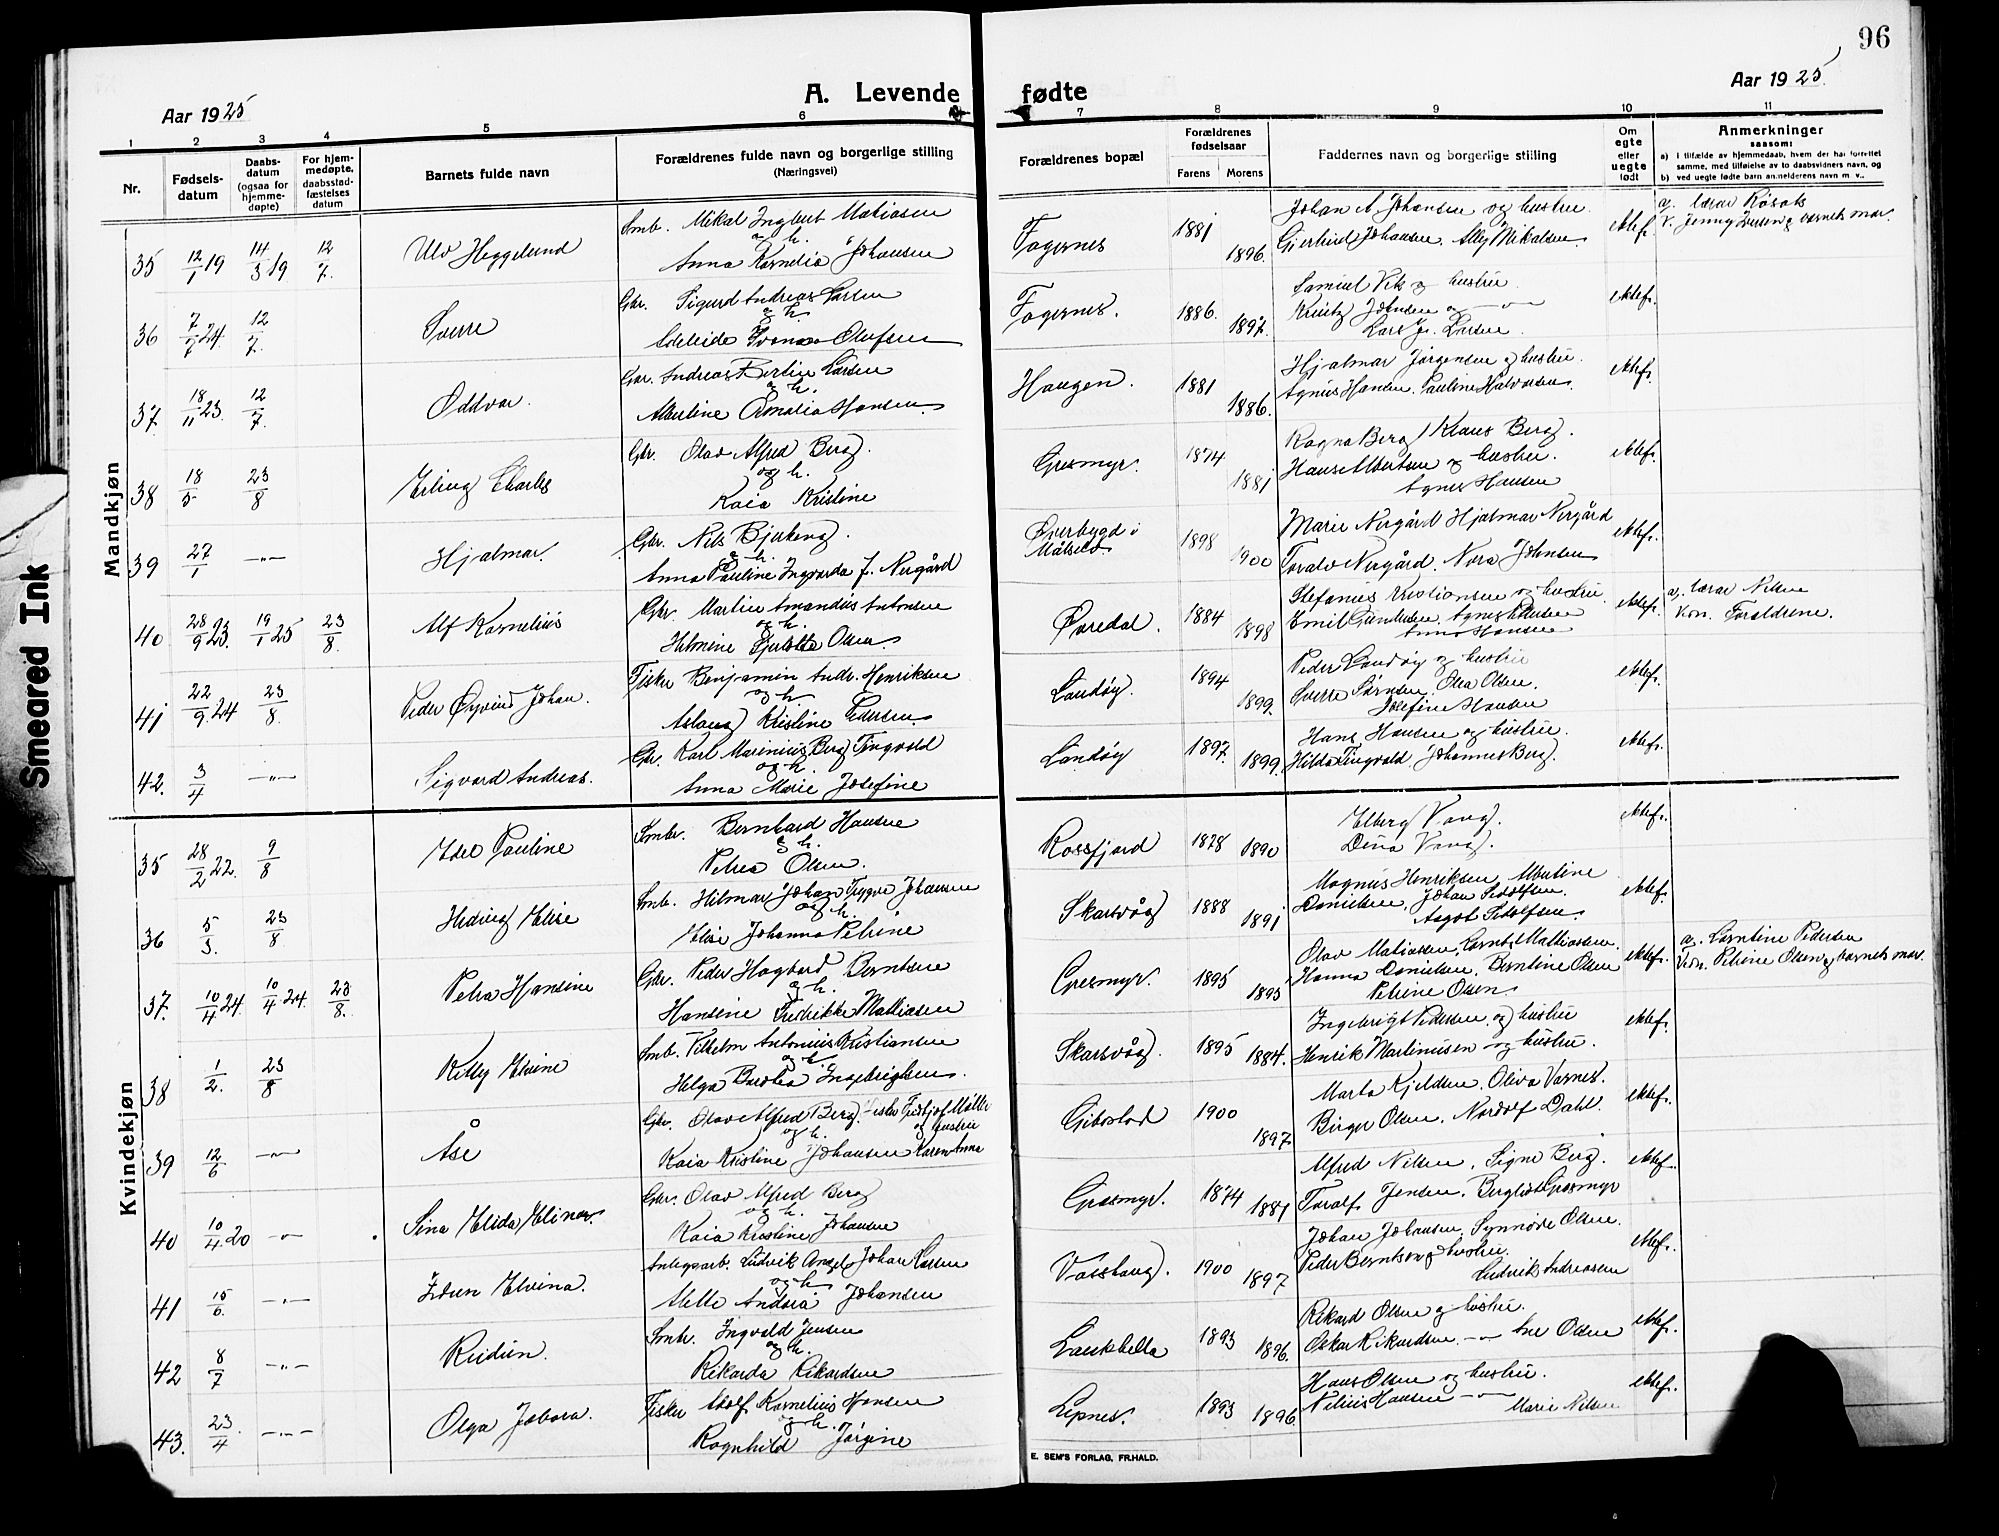 96
Aar 1925
A. Levende
fødte
Aar 1925
1 2 3 4 5 6 7 8 9 10 11
Nr.
Fødsels-
datum
Daabs-
datum
(ogsaa for
hjemme-
døpte)
For hjem-
medøpte,
daabsstad-
fæstelses
datum
Barnets fulde navn
Forældrenes fulde navn og borgerlige stilling
(Næringsvei)
Forældrenes bopæl
Forældrenes
fødselsaar
Farens Morens
Faddernes navn og borgerlige stilling
Om
egte
eller
uegte
født
Anmerkninger
saasom:
a) i tilfælde av hjemmedaab, hvem der har forrettet
samme, med tilføielse av to daabsvidners navn, og
b) ved uegte fødte barn anmelderens navn m. v..
Smeared Ink
Mandkjøn
35 12/1 19 14/3 19 12/7 Ulv Heggelund
Smb. Mikal Ingbert Matiasen
og h.
Anna Kornelia Johansen
Fagernes 1881 1896.
Johan A Johansen og hustru
Gjertrud Johansen, Ally Mikalsen
ektef.
a. lærer Røsok
V. Jenny Iversen og barnets mor.
36 7/7 24. 12/7. Sverre
Gbr. Sigurd Andreas Larsen
og h.
Adeleide Ovensen
Fagernes. 1886. 1897.
Samuel Vik og hustru
Johnsen og
Lars Larsen.
ektef.
37. 18/11 23. 12/7. Oddvar.
Gbr. Andreas Bertin Larsen
og h.
Albertine Amalia Hansen
Haugen. 1881 1886.
Hjalmar Jørgensen og hustru.
Agnus Hansen. Pauline Halvorsen.
ektef.
38 18/5 23/8 Erling Charles
Gbr. Olav Alfred Berg.
og h.
Kaia Kristine
Grasmyr. 1874 1881
Ragna Berg, Klaus Berg.
Hans Albertsen og hustru.
Agnes Hansen
ektef.
39 27/1 -"- Hjalmar.
Gbr. Nils Bjerkeng.
og h.
Anna Pauline Ingvarda f. Nergård
Øverbygd i
Målselv 1898 1900
Marie Nergård Hjalmar Nergård
Toralv Nergård. Nora Johnsen
ektef.
40 28/9 23. 19/1 25 23/8. Alf Kornelius
Gbr. Martin Amandus Antonsen
og h.
Hilmine Olsen
Øvredal. 1884 1898
Stefanus Kristiansen og hustru.
Emil Gundersen, Agnes Hansen
Anna Hansen
ektef.
a. lærer Nilsen
Von. Foreldrene.
41 22/9. 24 23/8. Peder Øyvind Johan.
Fisker Benjamin Andr. Henriksen
og h.
Aslaug Kristine Pedersen
Sandøy. 1894 1899.
Peder Sandøy og hustru
Sverre Sørnsen, Olea Olsen.
Josefine Hansen
ektef.
42. 3/4 -"- Sigvard Andreas.
Gbr. Karl Marinius Berg Tingvold
og h.
Anna Marie Josefine
Sandøy 1897. 1899.
Hans Hansen og hustru.
Hilda Tingvold, Johannes Berg.
ektef.
Kvindekjøn
35 28/2 22. 9/8 Edel Pauline
Smbr. Bernhard Hansen
og h.
Petrea Olsen.
Rossfjord 1878 1890
Elberg Vang.
Dina Vang.
ektef.
36 5/3. 23/8 Hedvig Elise
Smb. Hilmar Johan Trygve Johansen
og h.
Elise Johanna Petrine
Skarsvåg 1888 1891
Magnus Henriksen, Albertine
Danielsen, Johan Adolfsen.
Aagot Adolfsen.
ektef.
37. 10/4 24. 10/4 24. 23/8. Petra Hansine
Gbr. Peder Hagbard Berntsen
og h.
Hansine Fredrikke Mathiasen
Grasmyr. 1895 1895
Olav Matiassen, Mathiassen.
Hanna Danielsen, Berntine Olsen
Petrine Olsen.
ektef.
a. Berntine Pedersen
Vidn. Petrine Olsen og barnets mor.
38 1/2. 23/8 Kitty Elvine
Smb. Vilhelm Antonius Kristiansen
og h.
Helga Ingebrigtsen.
Skarsvåg. 1895 1884.
Ingebrigt Pedersen og hustru
Henrik Martinusen og hustru.
ektef.
39 12/6 -"- Åse
Gbr. Olav Alfred Berg. Fisker Fridtjof Møller
og h. og hustru
Kaia Kristine Johansen Karen Anna
Gibostad 1900 1897
Marta Kjeldsen, Oliva Varnes.
Birger Olsen, Nordolf Dahl.
ektef.
40 10/4. 20 -"- Sina Elida Elinor.
Gbr. Olav Alfred Berg
og h.
Kaia Kristine Johansen
Grasmyr. 1874 1881
Alfred Nilsen, Signe Berg.
Toralf Jensen, Bergliot Grasmyr
ektef.
41 15/6. -"- Idun Elvina.
Anlegsarb. Ludvik Angel Johan Larsen
og h
Alette Andrea Johansen
Vasshaug. 1900 1897
Johan Johansen, Synnøve Olsen.
Peder Berntsen og hustru.
Ludvik Andreassen
ektef.
42 8/7 -"- Reidun.
Smb. Ingvald Jensen
og h.
Rikarda Rikardsen
Lauksletta 1893 1896.
Rikard Olsen og hustru.
Oskar Rikardsen -"- Ane Olsen
ektef.
43. 23/4 -"- Olga Jobara.
Fisker Adolf Kornelius Hansen
og h.
Ragnhild Jørgine
Lepnes. 1893 1896
Hans Olsen og hustru
Nelius Hansen -"- Marie Nilsen
ektef.
E. SEM'S FORLAG, FR.HALD.